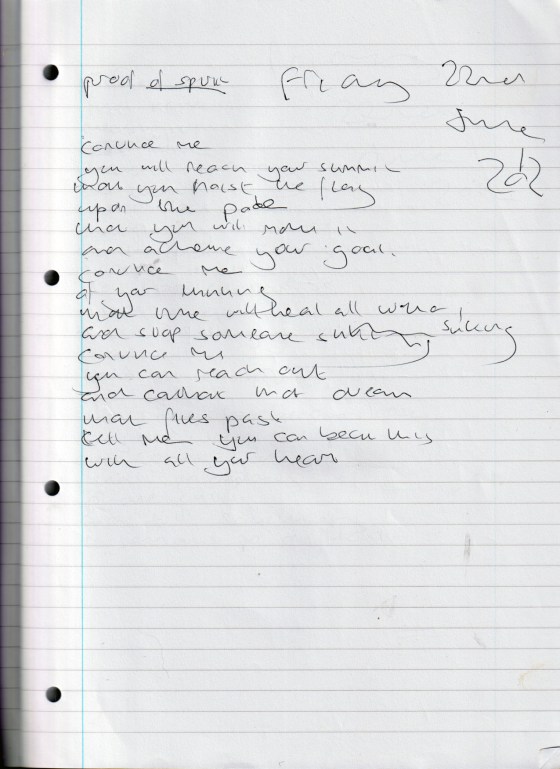 proof of spirit Friday 22nd
June
2012
convince me
you will reach your summit
that you hoist the flag
upon the pole
that you will make it
and achieve your goal.
convince me
of your
that time will heal all
and stop someone
convince me
you can reach out
and catch that dream
that flies past
tell me you can beat this
with all your heart